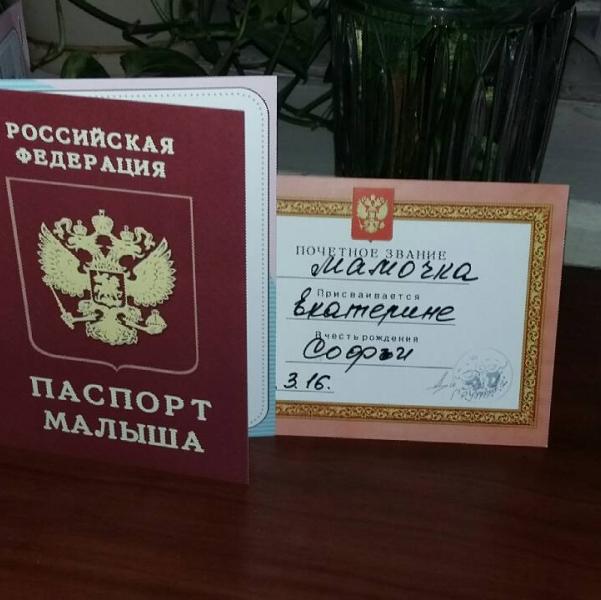 РОССИЙСКАЯ
ФЕДЕРАЦИЯ
ПАСПОРТ
МАЛЫША
ПОЧЕТНОЕ ЗВАНИЕ
Мамочка
Присваивается
Екатерине
В честь рождения
Софьи
3.16.